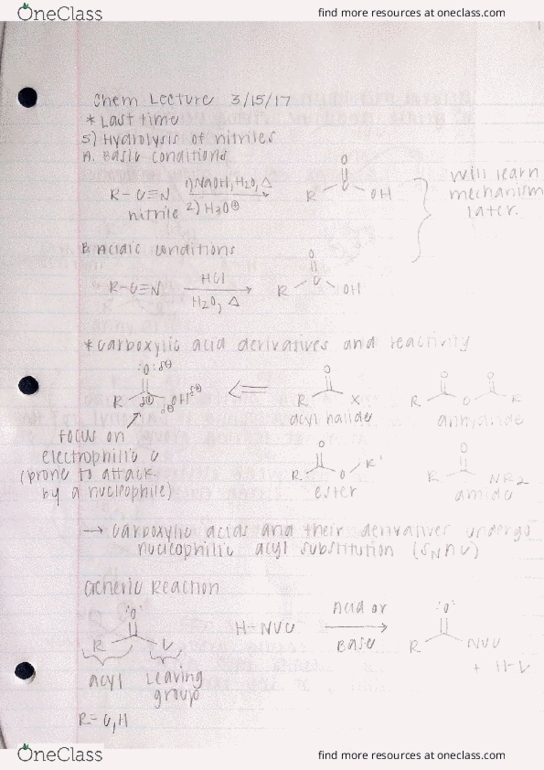 OneClass
find more resources at oneclass.com
Chem Lecture 3/15/17
* Last time
5) Hydrolysis of nitriles
A. Basic conditions
R-C≡N 1) NaOH, H2O, Δ
2) H3O⊕
nitrile
O
R C OH
will learn
mechanism
later.
B. Acidic conditions
R-C≡N HCl
H2O, Δ
O
R C OH
* Carboxylic acid derivatives and reactivity
:O: δ⊖
R δ⊕ OH δ⊕
O
R X
acyl halide
O O
R O R
anhydride
Focus on
electrophilic C
(prone to attack
by a nucleophile)
O
R O R'
ester
O
R NR2
amide
→ Carboxylic acids and their derivatives undergo
nucleophilic acyl substitution (SNAc)
Generic Reaction
:O:
R L
acyl
Leaving
group
H-NUC
Acid or
Base
:O:
R NUC
+ H-L
R=C,H
OneClass
find more resources at oneclass.com